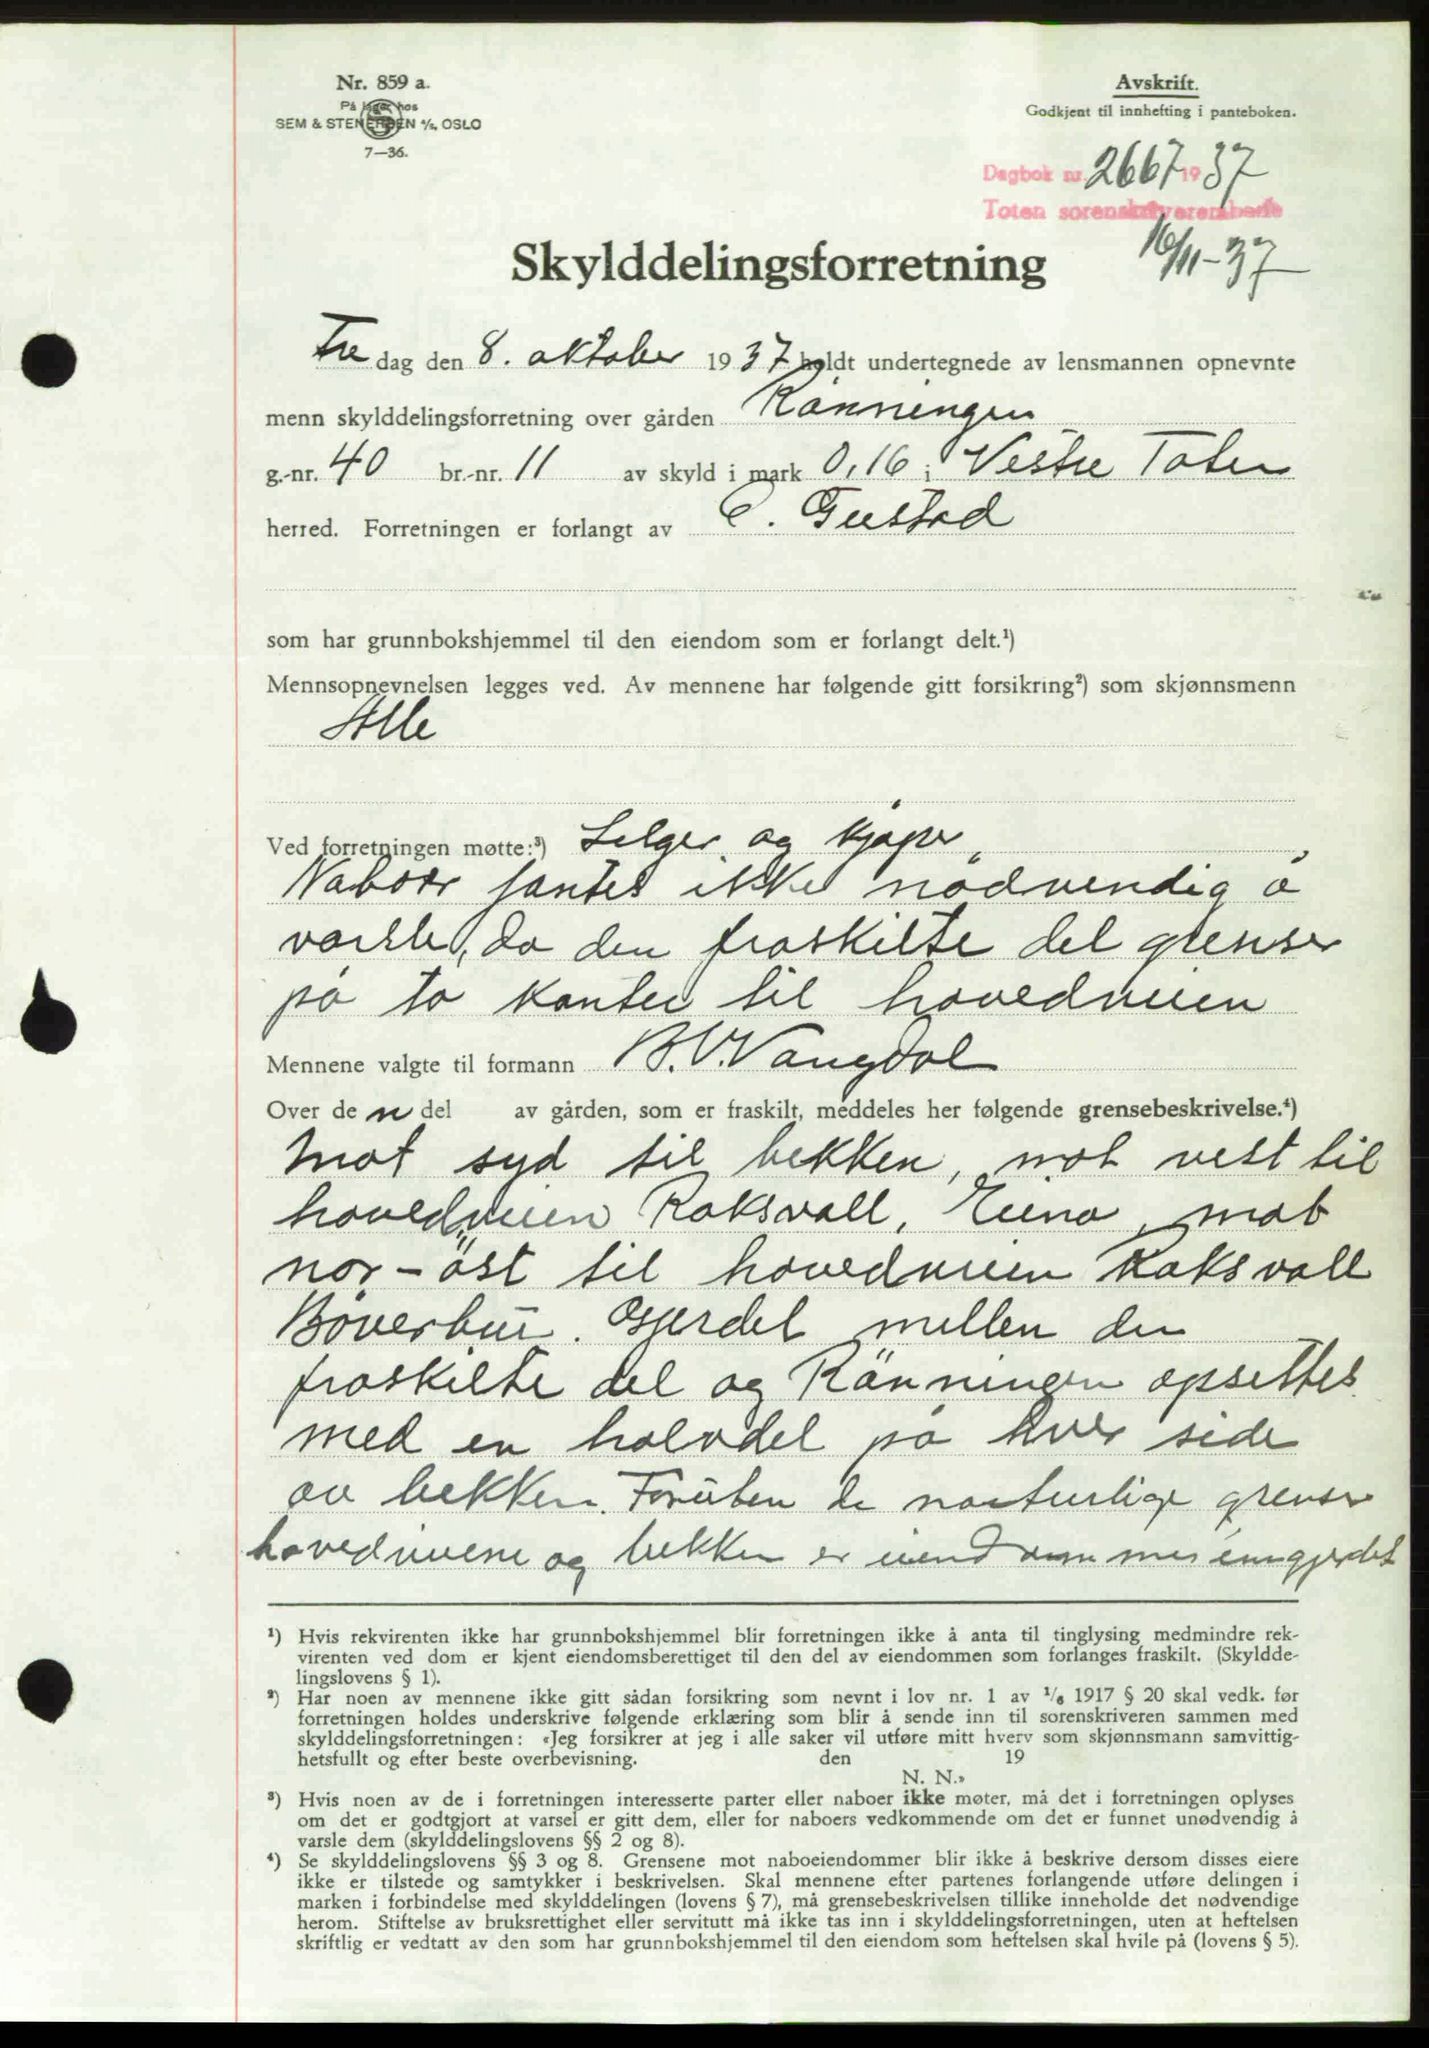 Nr. 859 a.
På lager hos
SEM & STENERSEN A/S, OSLO
7—36.
Avskrift.
Godkjent til innhefting i panteboken.
Dagbok nr. 2667 1937
Toten sorenskriverembede
16/11-37
Skylddelingsforretning
Fre dag den 8. oktober 1937 holdt undertegnede av lensmannen opnevnte
menn skylddelingsforretning over gården Rönningen
g.-nr. 40 br.-nr. 11 av skyld i mark 0,16 i Vestre Toten
herred. Forretningen er forlangt av C. Gustad
som har grunnbokshjemmel til den eiendom som er forlangt delt.¹)
Mennsopnevnelsen legges ved. Av mennene har følgende gitt forsikring²) som skjønnsmenn
Alle
Ved forretningen møtte:³) Selger og kjöper,
Naboer fantes ikke nödvendig å
varsle, da den fraskilte del grenser
på to kanter til hovedveien
Mennene valgte til formann B.V. Vangdal
Over de n del av gården, som er fraskilt, meddeles her følgende grensebeskrivelse.⁴)
Mot syd til bekken, mot vest til
hovedveien Raksvall, Eina, mot
nor-öst til hovedveien Raksvall
Böverbru. Gjerdet mellen den
fraskilte del og Rönningen opsettes
med en halvdel på hver side
av bekken. Foruten de naturlige grenser
hovedveiene og bekken er eiendommen inngjerdet
¹) Hvis rekvirenten ikke har grunnbokshjemmel blir forretningen ikke å anta til tinglysing medmindre rek-
virenten ved dom er kjent eiendomsberettiget til den del av eiendommen som forlanges fraskilt. (Skyldde-
lingslovens § 1).
²) Har noen av mennene ikke gitt sådan forsikring som nevnt i lov nr. 1 av 1/6 1917 § 20 skal vedk. før
forretningen holdes underskrive følgende erklæring som blir å sende inn til sorenskriveren sammen med
skylddelingsforretningen: «Jeg forsikrer at jeg i alle saker vil utføre mitt hverv som skjønnsmann samvittig-
hetsfullt og efter beste overbevisning. den 19
N. N.»
³) Hvis noen av de i forretningen interesserte parter eller naboer ikke møter, må det i forretningen oplyses
om det er godtgjort at varsel er gitt dem, eller for naboers vedkommende om det er funnet unødvendig å
varsle dem (skylddelingslovens §§ 2 og 8).
⁴) Se skylddelingslovens §§ 3 og 8. Grensene mot naboeiendommer blir ikke å beskrive dersom disses eiere
ikke er tilstede og samtykker i beskrivelsen. Skal mennene efter partenes forlangende utføre delingen i
marken i forbindelse med skylddelingen (lovens § 7), må grensebeskrivelsen tillike inneholde det nødvendige
herom. Stiftelse av bruksrettighet eller servitutt må ikke tas inn i skylddelingsforretningen, uten at heftelsen
skriftlig er vedtatt av den som har grunnbokshjemmel til den eiendom som heftelsen skal hvile på (lovens § 5).